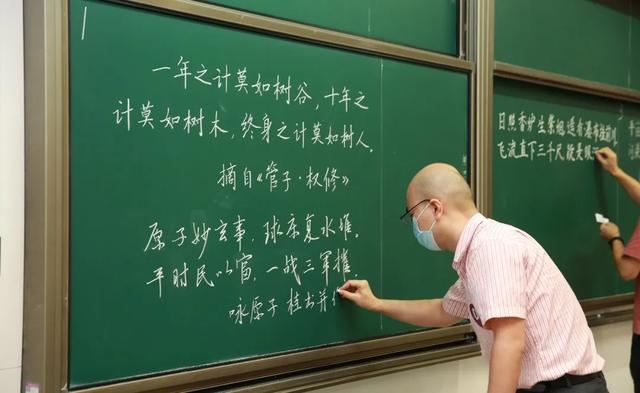 一年之计莫如树谷，十年之
计莫如树木，终身之计莫如树人。
摘自《管子·权修》
原子妙玄事，球床复水堆。
平时民以富，一战三军摧。
咏原子
日照香炉生紫烟遥看瀑布挂前川
飞流直下三千尺 疑是银